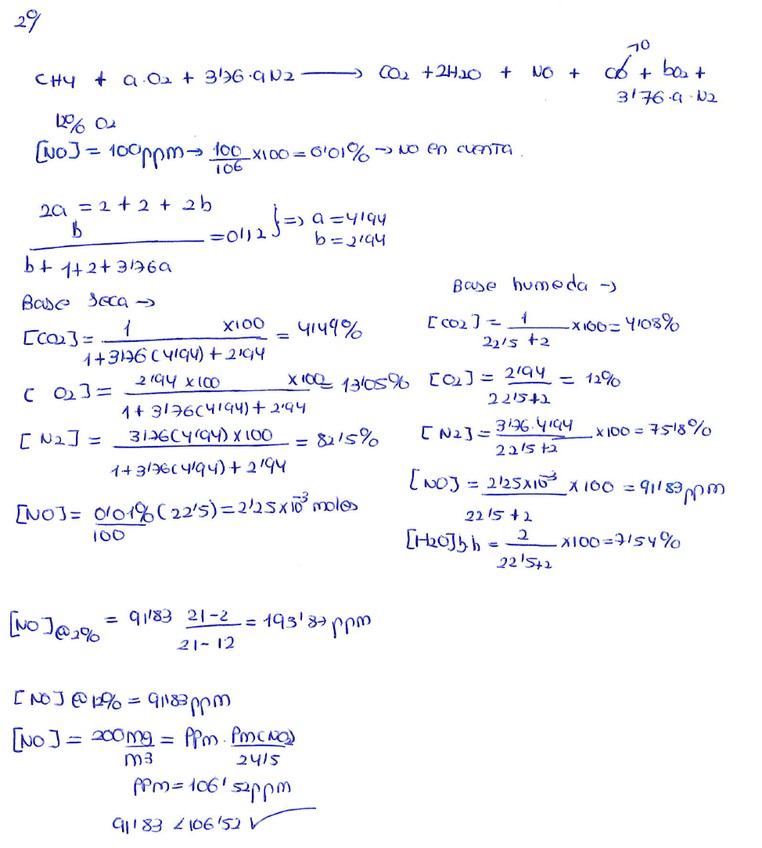 29
CH4 + a·O2 + 3'76·aN2 → CO2 + 2H2O + NO + CO →0 + bO2 +
3'76·a·N2
12% O2
[NO] = 100ppm → 100/10^6 x100 = 0'01% → NO en cuenta.
2a = 2 + 2 + 2b
b / (b + 1 + 2 + 3'76a) = 0'12 } => a = 4'94
b = 2'94
Base seca →
[CO2] = 1 / (1+3'76(4'94) + 2'94) x100 = 4'49%
[O2] = 2'94 x100 / (1+3'76(4'94) + 2'94) x100 = 13'05%
[N2] = 3'76(4'94) x100 / (1+3'76(4'94) + 2'94) = 82'5%
[NO] = 0'01% / 100 (22'5) = 2'25x10^-3 moles
Base humeda →
[CO2] = 1 / (22'5 + 2) x100 = 4'08%
[O2] = 2'94 / (22'5+2) = 12%
[N2] = 3'76·4'94 / (22'5+2) x100 = 75'8%
[NO] = 2'25x10^-3 / (22'5 + 2) x 100 = 91'83 ppm
[H2O]b h = 2 / (22'5+2) x100 = 7'54%
[NO]@2% = 91'83 (21-2) / (21-12) = 193'87 ppm
[NO]@12% = 91'83 ppm
[NO] = 200mg / m3 = PPm · Pm(NO2) / 24'5
PPm = 106'52ppm
91'83 < 106'52 ✓